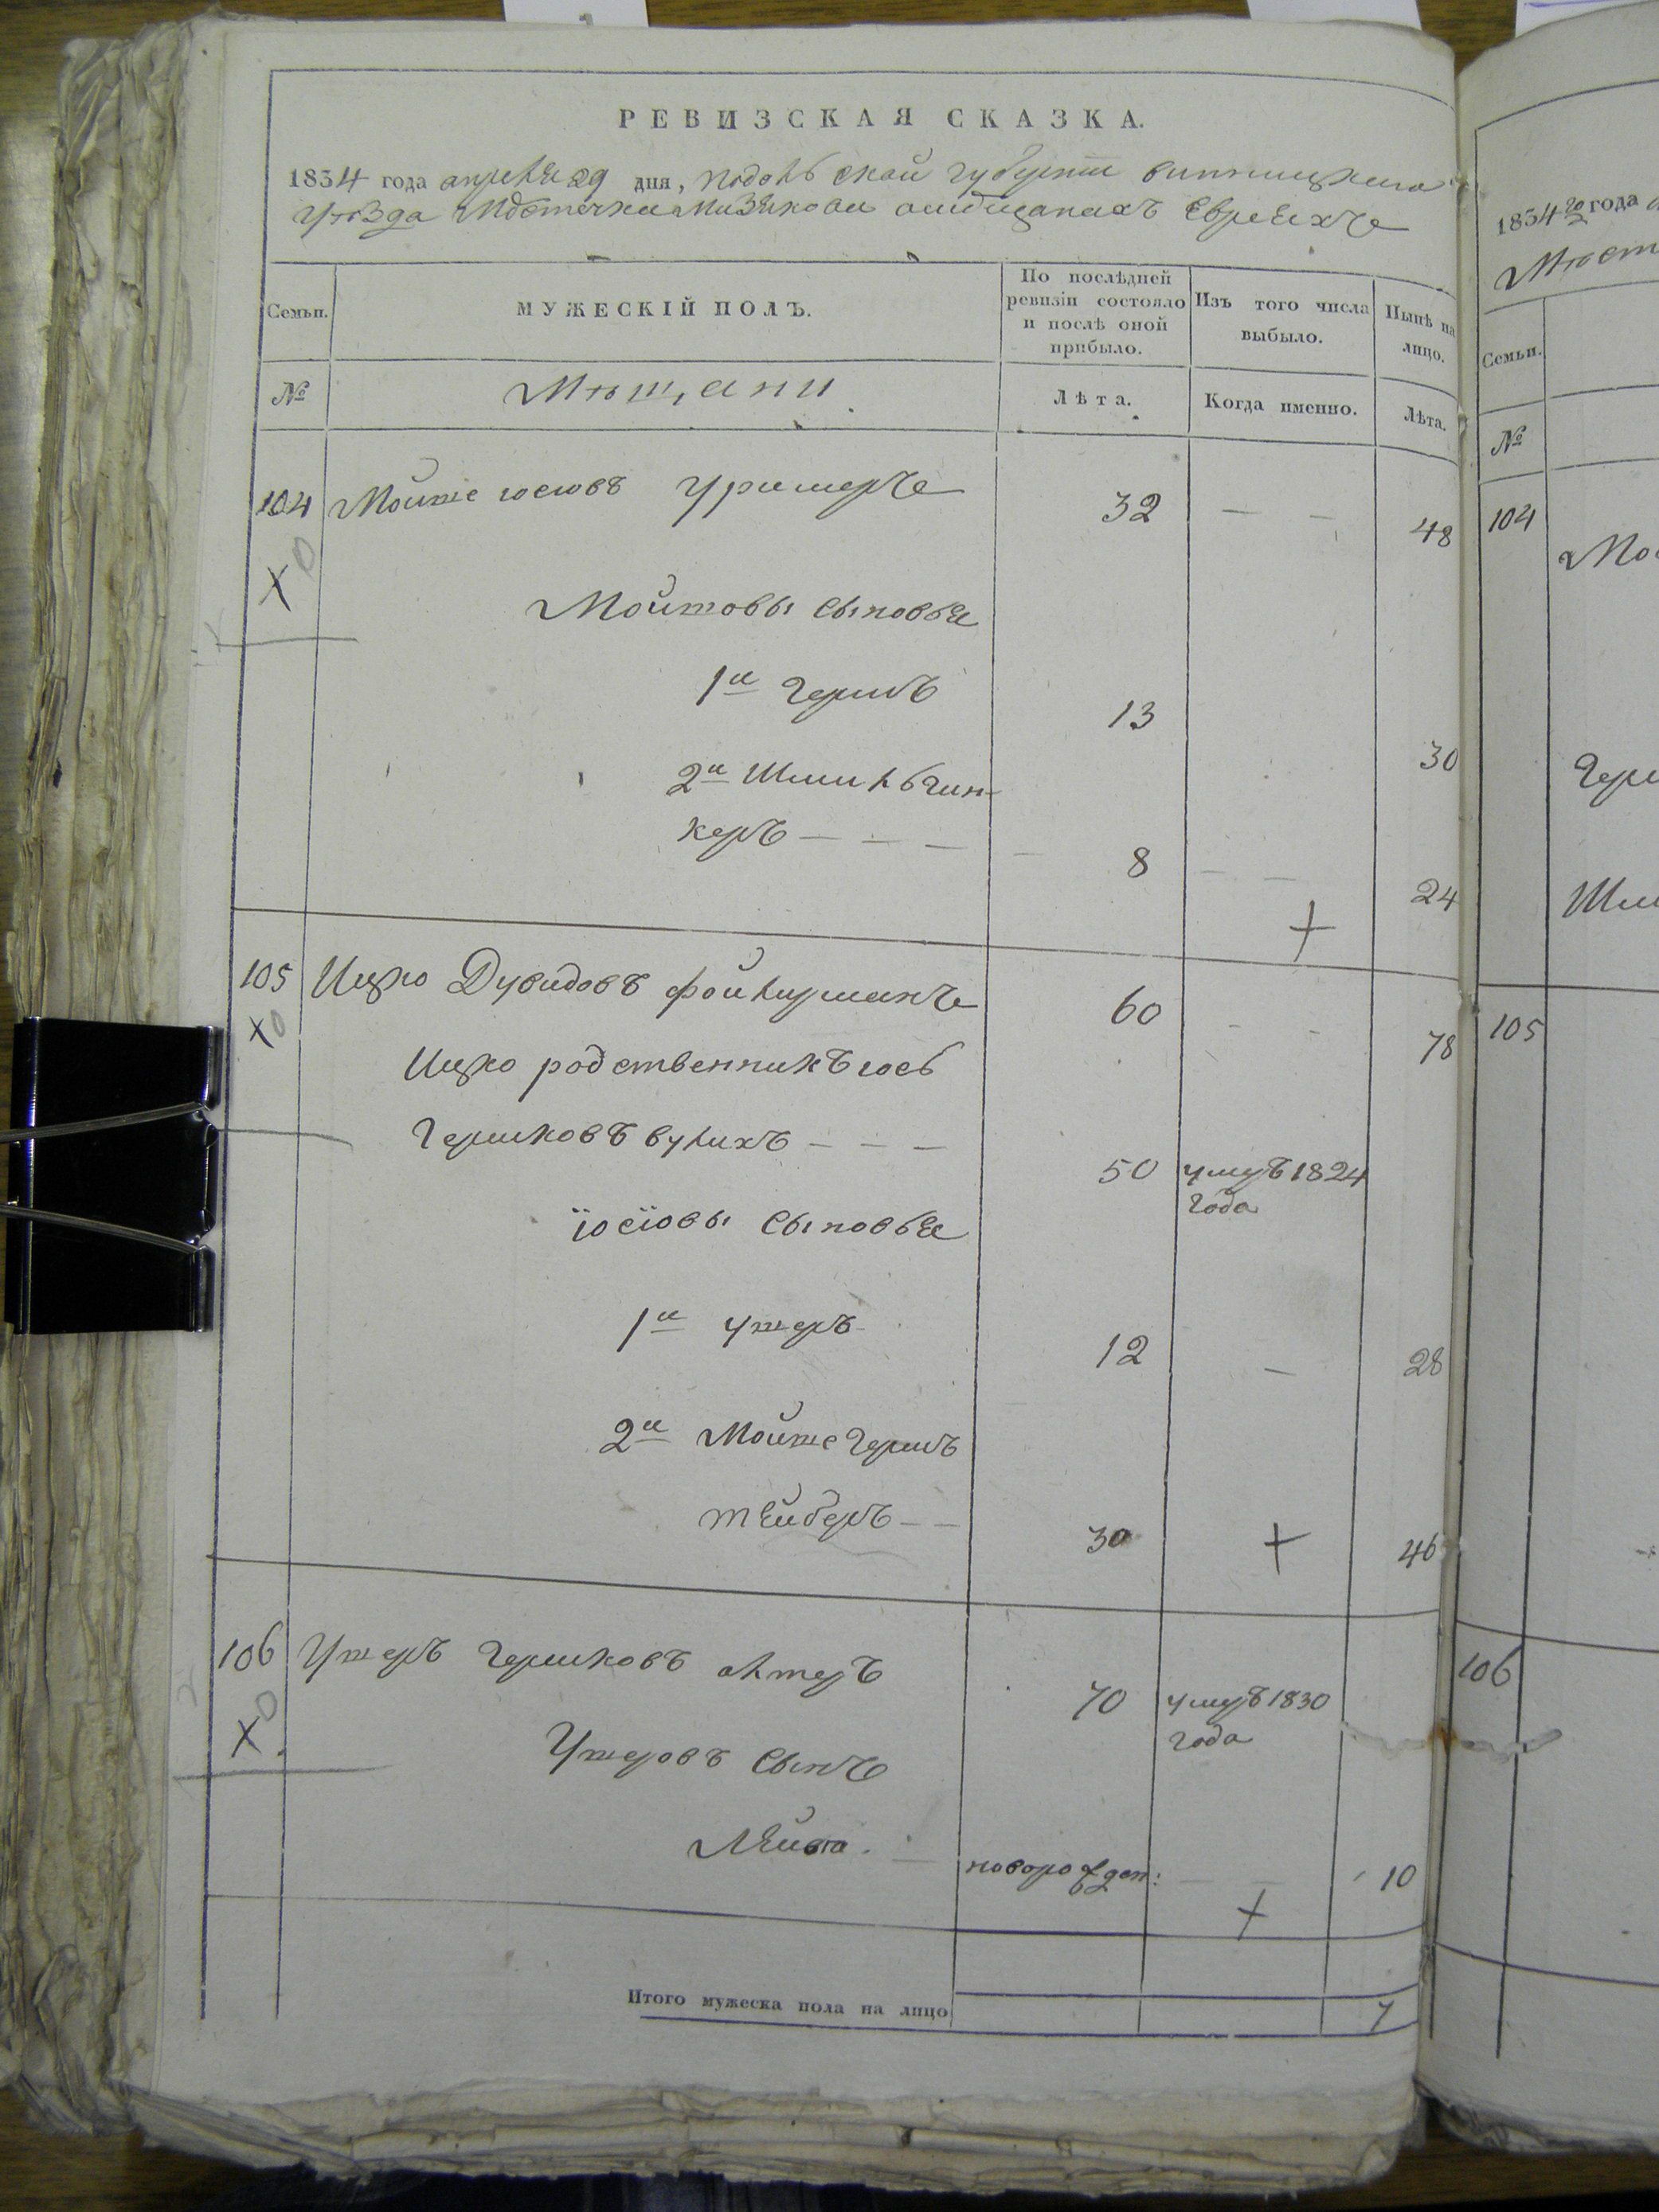 РЕВИЗСКАЯ СКАЗКА.
1834 года апреля 29 дня, Подольской губернии винницкаго
уѣзда Мѣстечка Мизякова омѣщанахъ Евреяхъ
Семьи.
МУЖЕСКІЙ ПОЛЪ.
По послѣдней ревизіи состояло и послѣ оной прибыло.
Изъ того числа выбыло.
Нынѣ на лицо.
№
Мѣщани
Лѣта.
Когда именно.
Лѣта.
104 Мойше Iосiовъ 32 — — 48
Мойшовы сыновья
1й Гершъ 13 30
2й Шмиль Чин-
керъ — — — 8 — — 24
105 Ицко Дувидовъ фойкирманъ 60 - - 78
Ицко родственникъ Iось
Гершковъ вулихъ — — — 50 умеръ 1824
года
їосїовы сыновья
1й Ушеръ 12 — 28
2й Мойше Гершъ
тейберъ — — 30 46
106 Ушеръ Гершковъ алтеръ 70 умеръ 1830
года
Ушеровъ сынъ
Лейба — новорожден: — — 10
Итого мужеска пола на лицо 7
1834 года
Мѣст
Семьи.
№
104
Мо
Гер
Шм
105
106